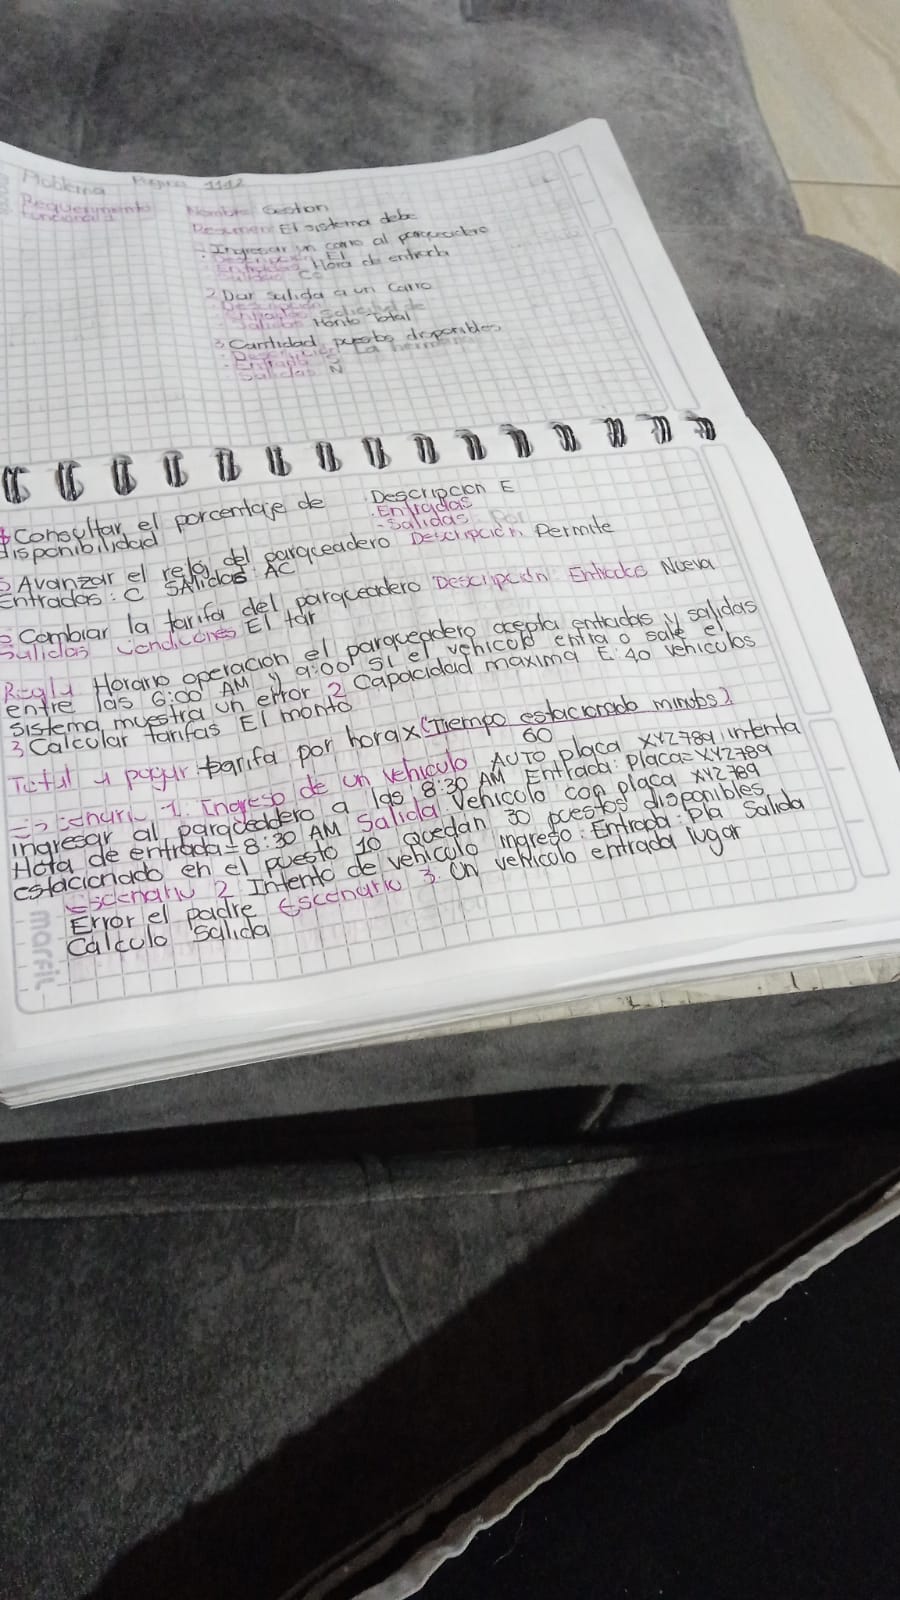 Problema
Requerimiento Nombre Gestion
Funcional 1 Resumen El sistema debe
1 Ingresar un carro al parqueadero
Descripcion El
Entradas Hora de entrada
Salidas
2 Dar salida a un Carro
Descripcion
Entradas Solicitud de
Salidas Monto Total
3 Cantidad puesto disponibles
Descripcion La
Entrada S
Salidas N
Consultar el porcentaje de Descripcion E
disponibilidad Entradas
Salidas Por
5 Avanzar el reloj del parqueadero Descripcion Permite
Entradas: C Salidas: AC
Combiar la tarifa del parqueadero Descripcion Entradas Nueva
Salidas Condiciones El tar
Regla Horario operacion el parqueadero acepta entradas y salidas
entre las 6:00 AM y 9:00 Si el vehicolo entra o sale el
sistema muestra un error 2 Capacidad maxima E: 40 vehiculos
3 Calcular tarifas El monto
Total a pagar tarifa por horax(Tiempo estacionado minutos)
60
Escenario 1: Ingreso de un vehiculo Auto placa XYZ789 intenta
ingresar al paraceddero a las 8:30 AM Entrada: placa= XYZ789
Hota de entrada= 8:30 AM Salida Vehicolo con placa XYZ789
estacionado en el puesto 10 quedan 30 puestos disponibles
Escenario 2 Intento de vehiculo ingreso: Entrada: Pla Salida
Error el padre Escenario 3. Un vehicolo entrada lugar
Calculo Salida
marfil